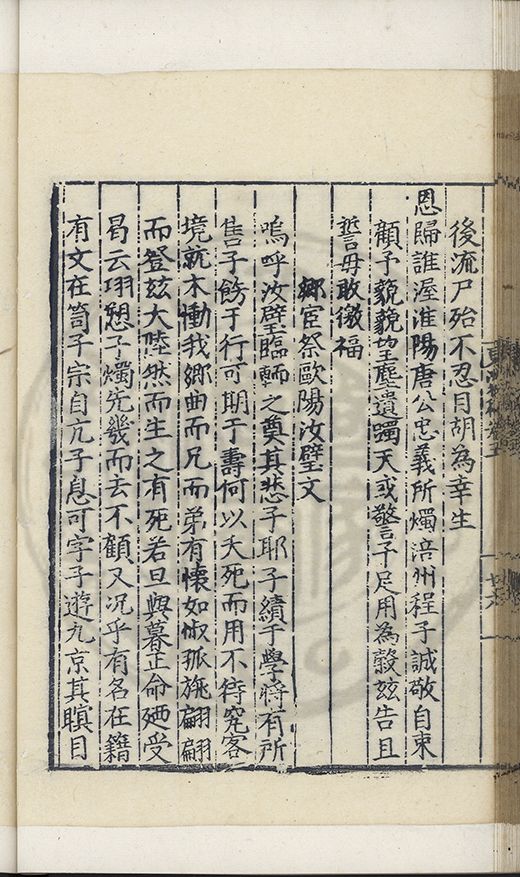 後流尸殆不忍目胡為幸生
恩歸誰渥淮陽唐公忠義所燭涪州程子誠敬自束
顧予藐藐望塵遺躅天或警予足用為穀玆告且
誓毋敢徼福
鄉宦祭歐陽汝璧文
嗚呼汝璧臨輀之奠其悲子耶子績于學將有所
售子飭于行可期于壽何以夭死而用不待究客
境訃木慟我鄉曲而兄而弟有懷如俶孤旐翩翩
而登玆大陸然而生之有死若旦與暮正命廼受
曷云項憩子燭先幾而去不顧又況乎有名在籍
有文在笥子宗自亢子息可字子遊九京其瞑目